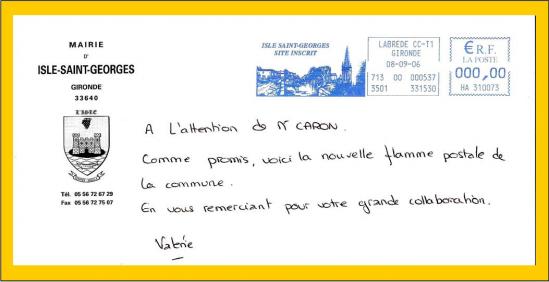 MAIRIE
D'
ISLE-SAINT-GEORGES
GIRONDE
33640
L'ISLE
Tél. 05 56 72 67 29
Fax 05 56 72 75 07
ISLE SAINT-GEORGES
SITE INSCRIT
LABREDE CC-T1
GIRONDE
08-09-06
713 00 000537
3501 331530
€ R.F.
LA POSTE
000,00
HA 310073
A L'attention de Mr CARON.
Comme promis, voici la nouvelle flamme postale de
la commune.
En vous remerciant pour votre grande collaboration.
Valérie